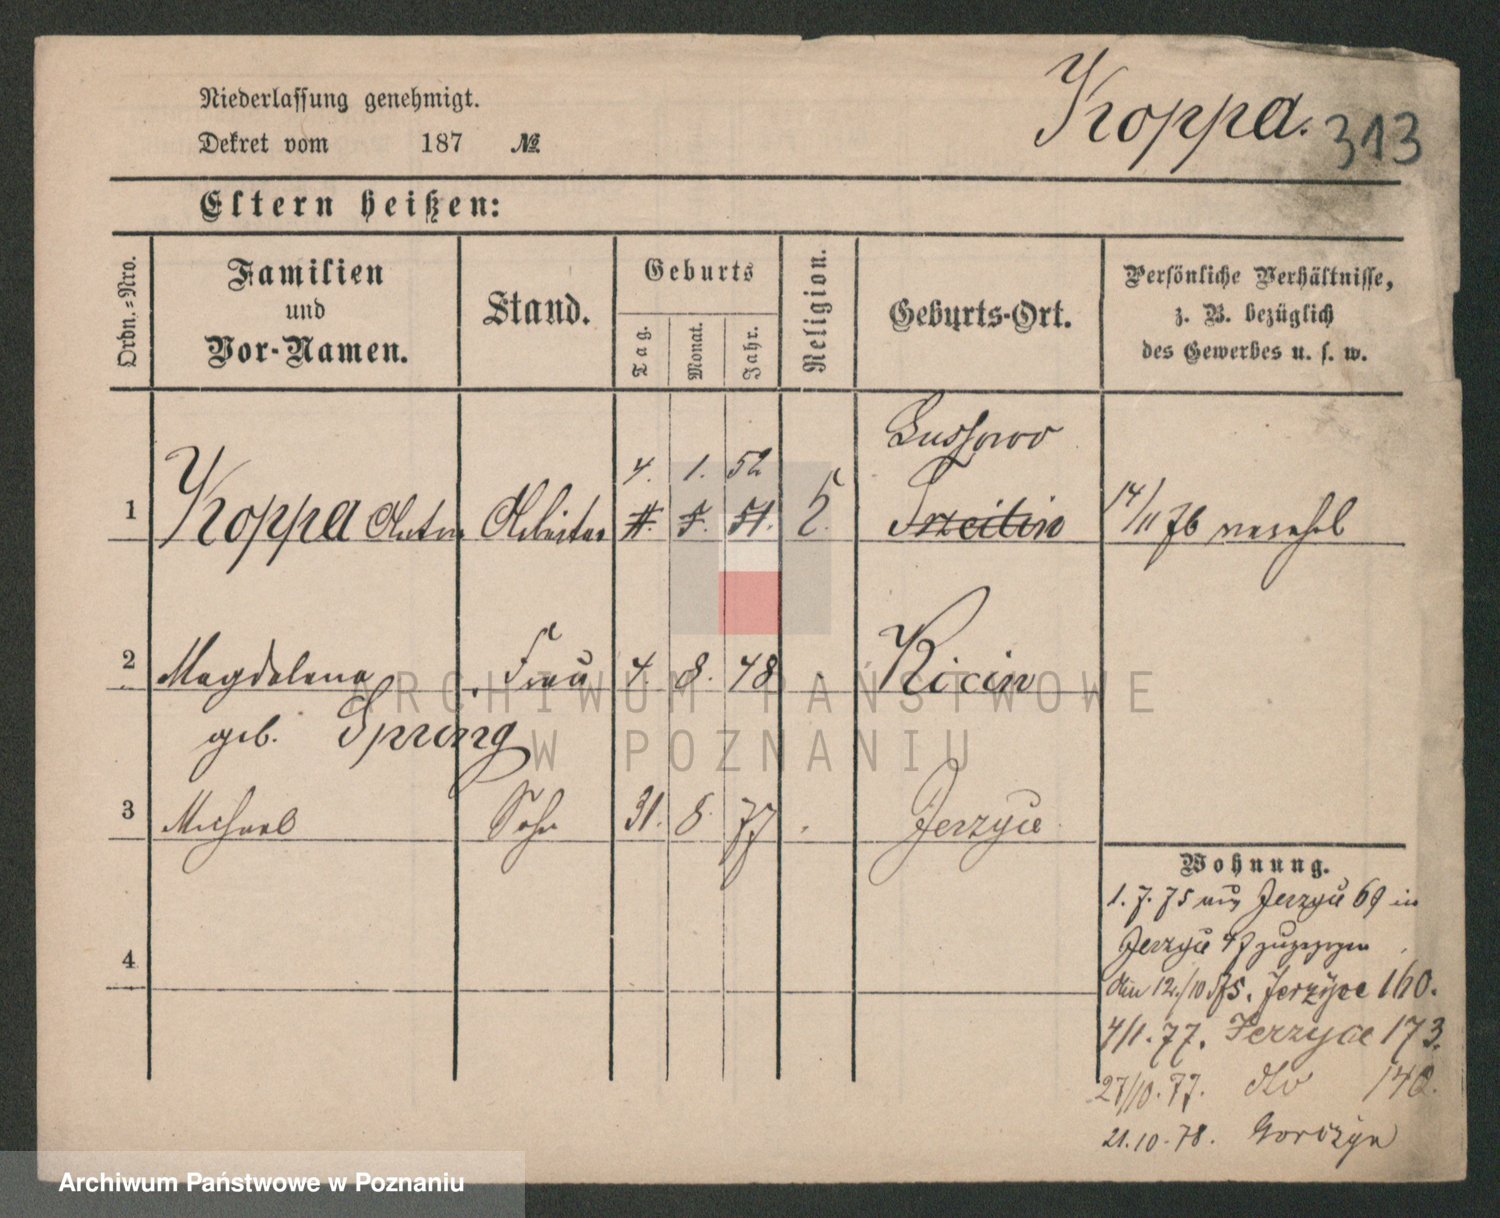 Niederlassung genehmigt.
Koppa. 313
Dekret vom 187 №
Eltern heißen:
Ordn.-Nro.
Familien
und
Vor-Namen.
Stand.
Geburts
Tag.
Monat.
Jahr.
Religion.
Geburts-Ort.
Persönliche Verhältnisse,
z. B. bezüglich
des Gewerbes u. s. w.
4. 1. 52
1 Koppa Anton Arbeiter 14/11 76 verehel
2 Magdalena Frau 4. 8. 48 Kicin
geb.
3 Michael Sohn 31. 8. 77 Jerzyce
4
Wohnung.
1. 7. 75 aus Jerzyce 69 in
Jerzyce 47 zugezogen
den 12./10 75. Jerzyce 160.
4/1. 77. Jerzyce 173.
27/10. 77. dto 140.
21.10.78. Gorczyn
ARCHIWUM PAŃSTWOWE
W POZNANIU
Archiwum Państwowe w Poznaniu